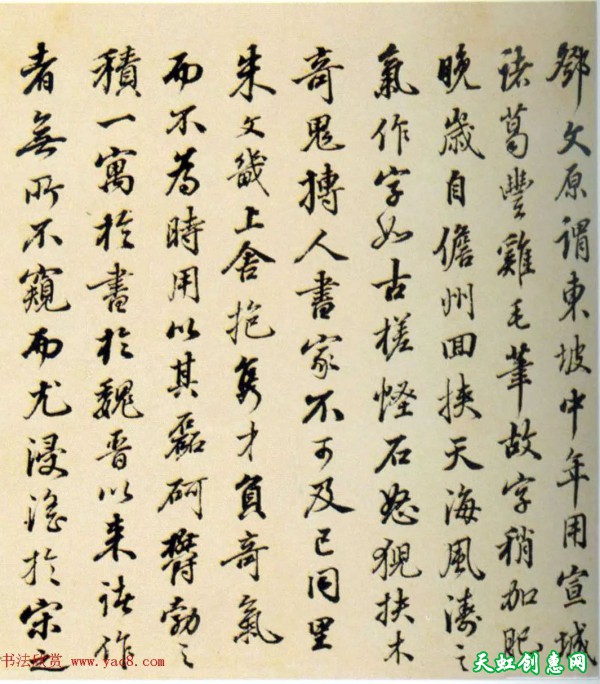 鄧文原謂東坡中年用宣城
諸葛豐雞毛筆故字稍加肥
晚歲自儋州回挾天海風濤之
氣作字如古槎怪石怒猊抉木
奇鬼搏人書家不可及已同里
朱文畿上舍抱雋才負奇氣
而不為時用以其磊砢鬱勃之
積一寓於書於魏晉以來諸作
者無所不窺而尤浸淫於宋之
书法欣赏 www.yac8.com
天虹创惠网